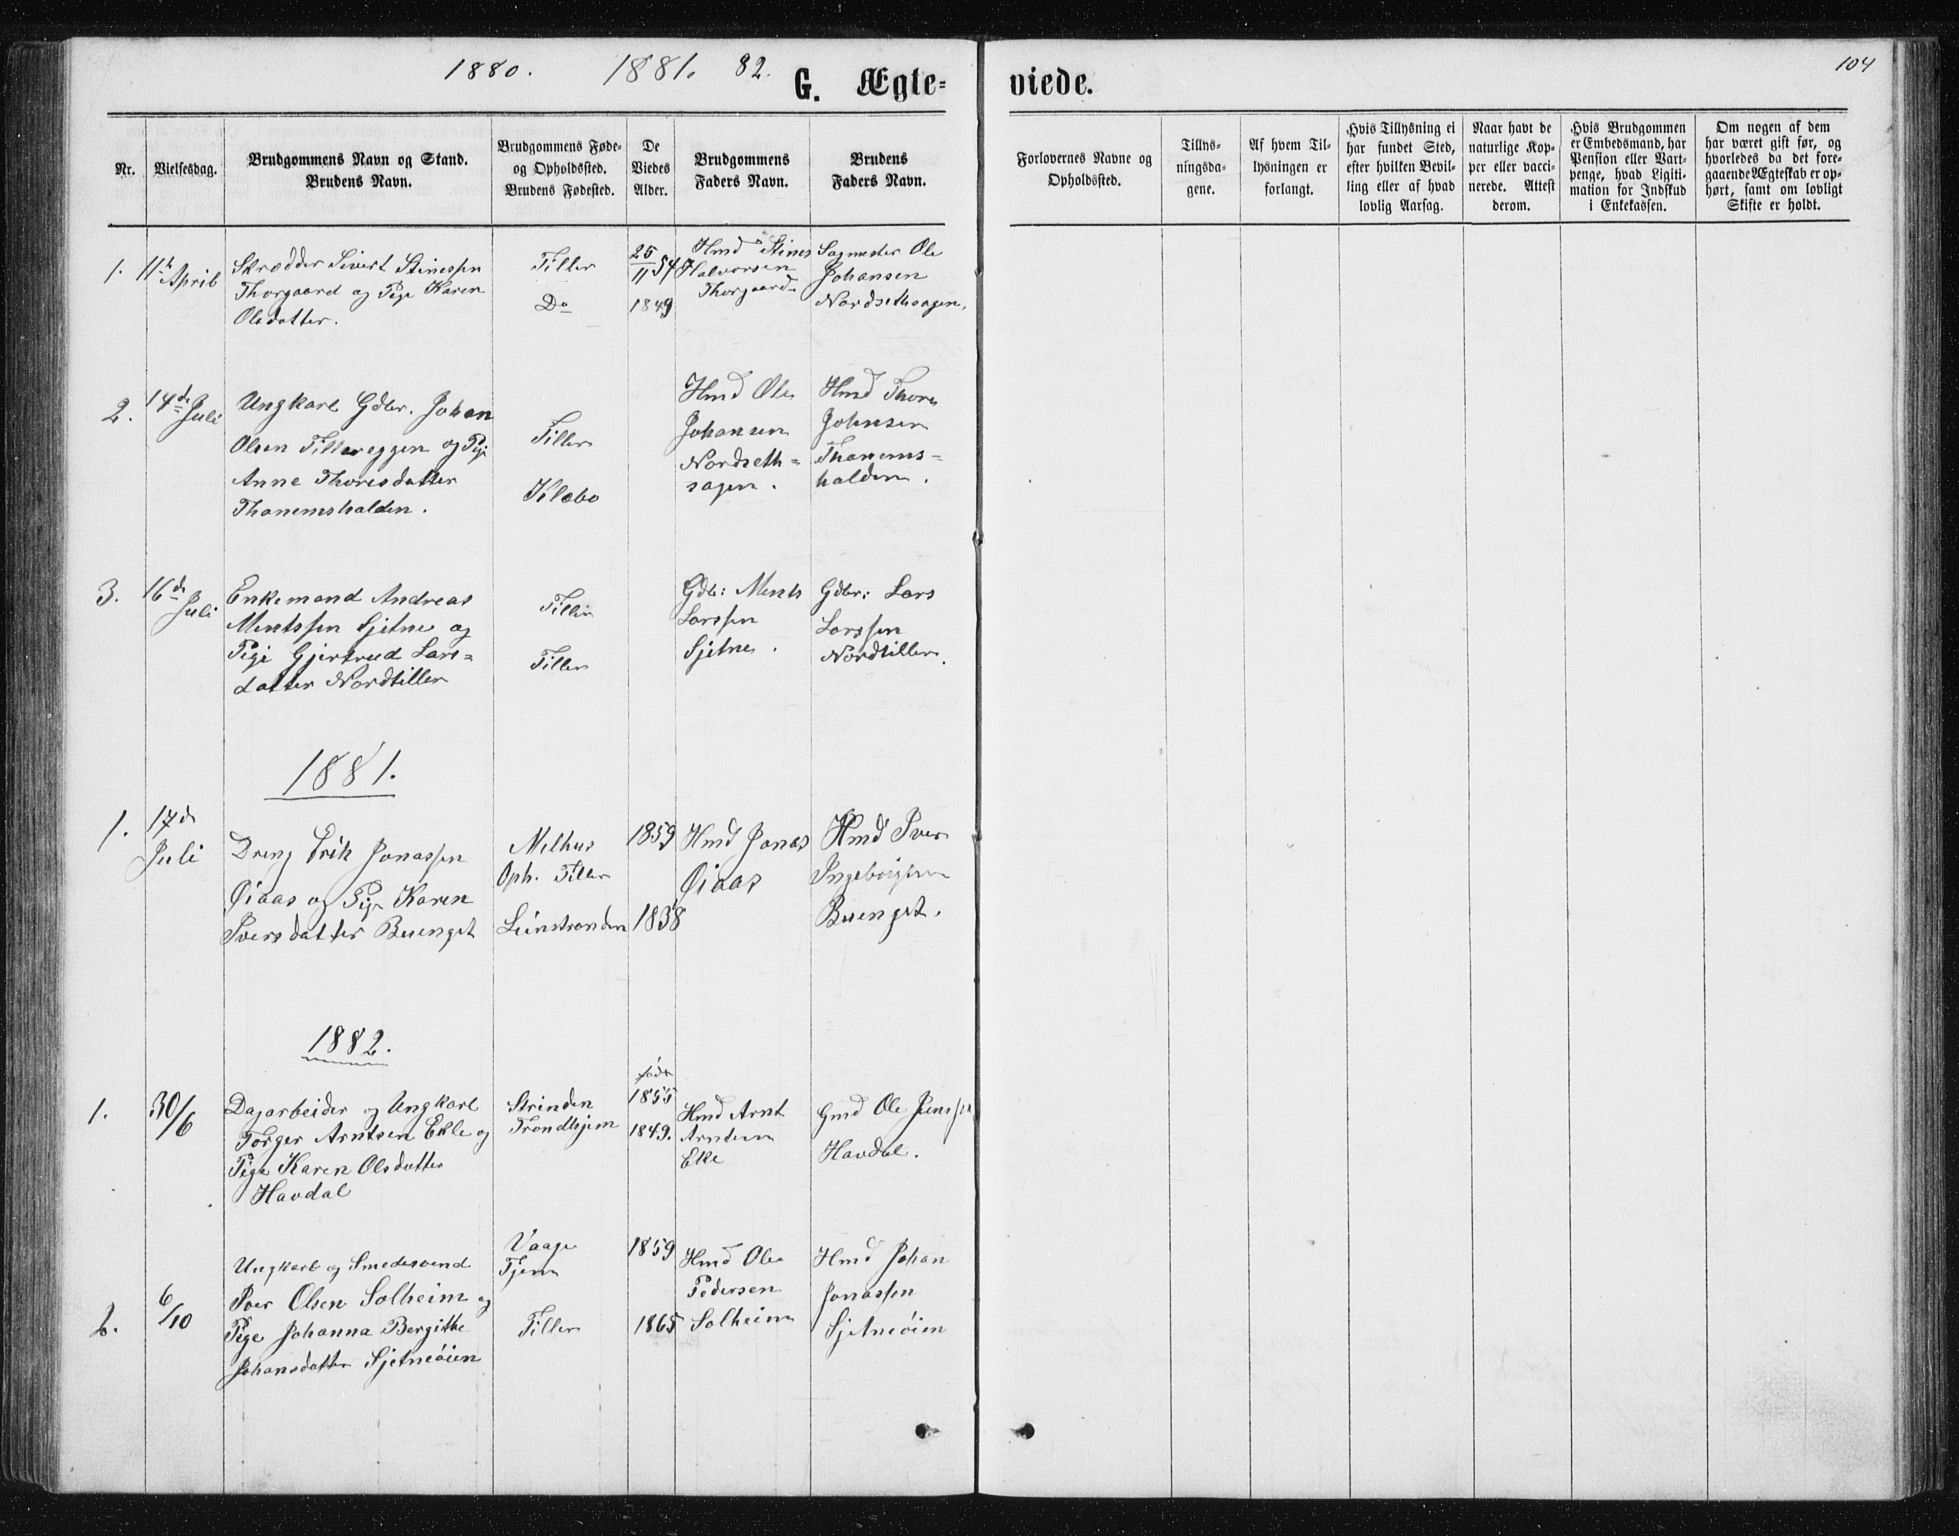 1880. 1881. 82.
G. Ægte-
viede.
104
Nr.
Vielsesdag.
Brudgommens Navn og Stand.
Brudens Navn.
Brudgommens Føde-
og Opholdssted.
Brudens Fødested.
De
Viedes
Alder.
Brudgommens
Faders Navn.
Brudens
Faders Navn.
Forlovernes Navne og
Opholdssted.
Tillys-
ningsda-
gene.
Af hvem Til-
lysningen er
forlangt.
Hvis Tillysning ei
har fundet Sted,
efter hvilken Bevil-
ling eller af hvad
lovlig Aarsag.
Naar havt de
naturlige Kop-
per eller vacci-
nerede. Attest
derom.
Hvis Brudgommen
er Embedsmand, har
Pension eller Vart-
penge, hvad Ligiti-
mation for Indskud
i Enkekassen.
Om nogen af dem
har været gift før, og
hvorledes da det fore-
gaaende Ægteskab er op-
hørt, samt om lovligt
Skifte er holdt.
1.
11te April
Skrædder Sivert Stinessen
Thorgaard og Pige Karen
Olsdatter.
Tiller
Do
25/11 54
1849
Hmd Stines
Halvorsen
Thorgaard
Sagmester Ole
Johansen
Nordsethsagen.
2.
14de Juli
Ungkarl Gdbr. Johan
Olsen Tillereggen og Pige
Anne Thoresdatter
Thanemshalden.
Tiller
Klæbo
Hmd Ole
Johansen
Nordseth=
sagen.
Hmd Thore
Johnsen
Thanems=
halden.
3.
16de Juli
Enkemand Andreas
Mentssen Sjetne og
Pige Gjertrud Lars=
datter Nordtiller
Tiller
Tiller
Gdb: Ments
Larssen
Sjetne.
Gdbr: Lars
Larssen
Nordtiller.
1881.
1.
17de
Juli
Dreng Erik Jonassen
Øiaas og Pige Karen
Iversdatter Buenget
Melhus
Oph. Tiller
Leinstranden
1859
1838
Hmd Jonas
Øiaas
Hmd Iver
Ingebrigtsen
Buenget.
1882.
1.
30/6
Dagarbeider og Ungkarl
Torger Arntsen Ekle og
Pige Karen Olsdatter
Havdal
Strinden
Trondhjem
født
1855
1849.
Hmd Arnt
Arntsen
Ekle
Gmd Ole Jenssen
Havdal.
2.
6/10
Ungkarl og Smedesvend
Iver Olsen Solheim og
Pige Johanna Bergitte
Johansdatter Sjetneöien
Vaage
Tiller
1859
1865
Hmd Ole
Pedersen
Solheim
Hmd Johan
Jonassen
Sjetneöien